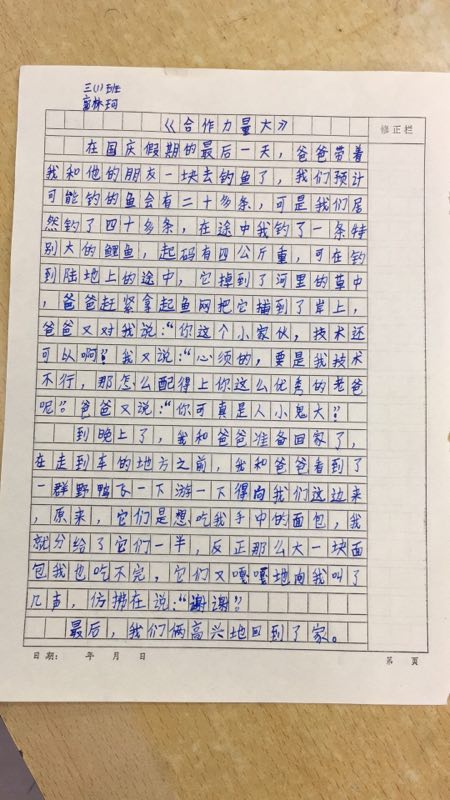 三(1)班
《合作力量大》
修正栏
在国庆假期的最后一天，爸爸带着
我和他的朋友一块去钓鱼了，我们预计
可能钓的鱼会有二十多条，可是我们居
然钓了四十多条，在途中我钓了一条特
别大的鲤鱼，起码有四公斤重，可在钓
到陆地上的途中，它掉到了河里的草中
，爸爸赶紧拿起鱼网把它捕到了岸上，
爸爸又对我说：“你这个小家伙，技术还
可以啊？”我又说：“心须的，要是我技术
不行，那怎么配得上你这么优秀的老爸
呢？”爸爸又说：“你可真是人小鬼大？”
到晚上了，我和爸爸准备回家了，
在走到车的地方之前，我和爸爸看到了
一群野鸭飞一下游一下得向我们这边来
，原来，它们是想吃我手中的面包，我
就分给了它们一半，反正那么大一块面
包我也吃不完，它们又嘎嘎地向我叫了
几声，仿拂在说：“谢谢”？
最后，我们俩高兴地回到了家。
日期： 年 月 日 第 页